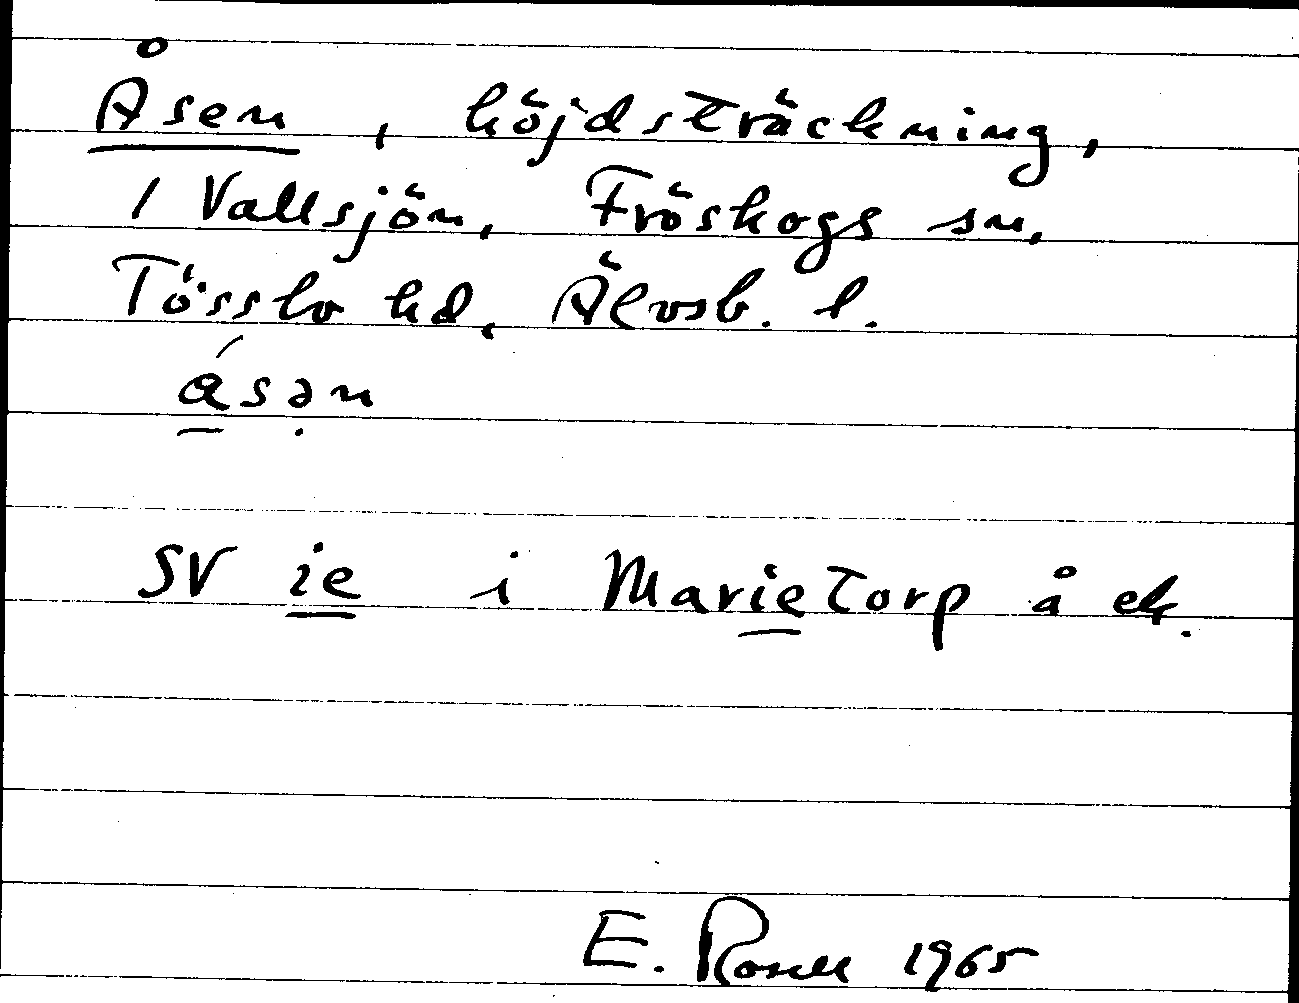 Åsen, höjdsträckning,
1 Vallsjön, Fröskogs sn,
Tössbo hd, Älvsb. l.
ásən
SV ie i Marietorp å ek.
E. Rosell 1965